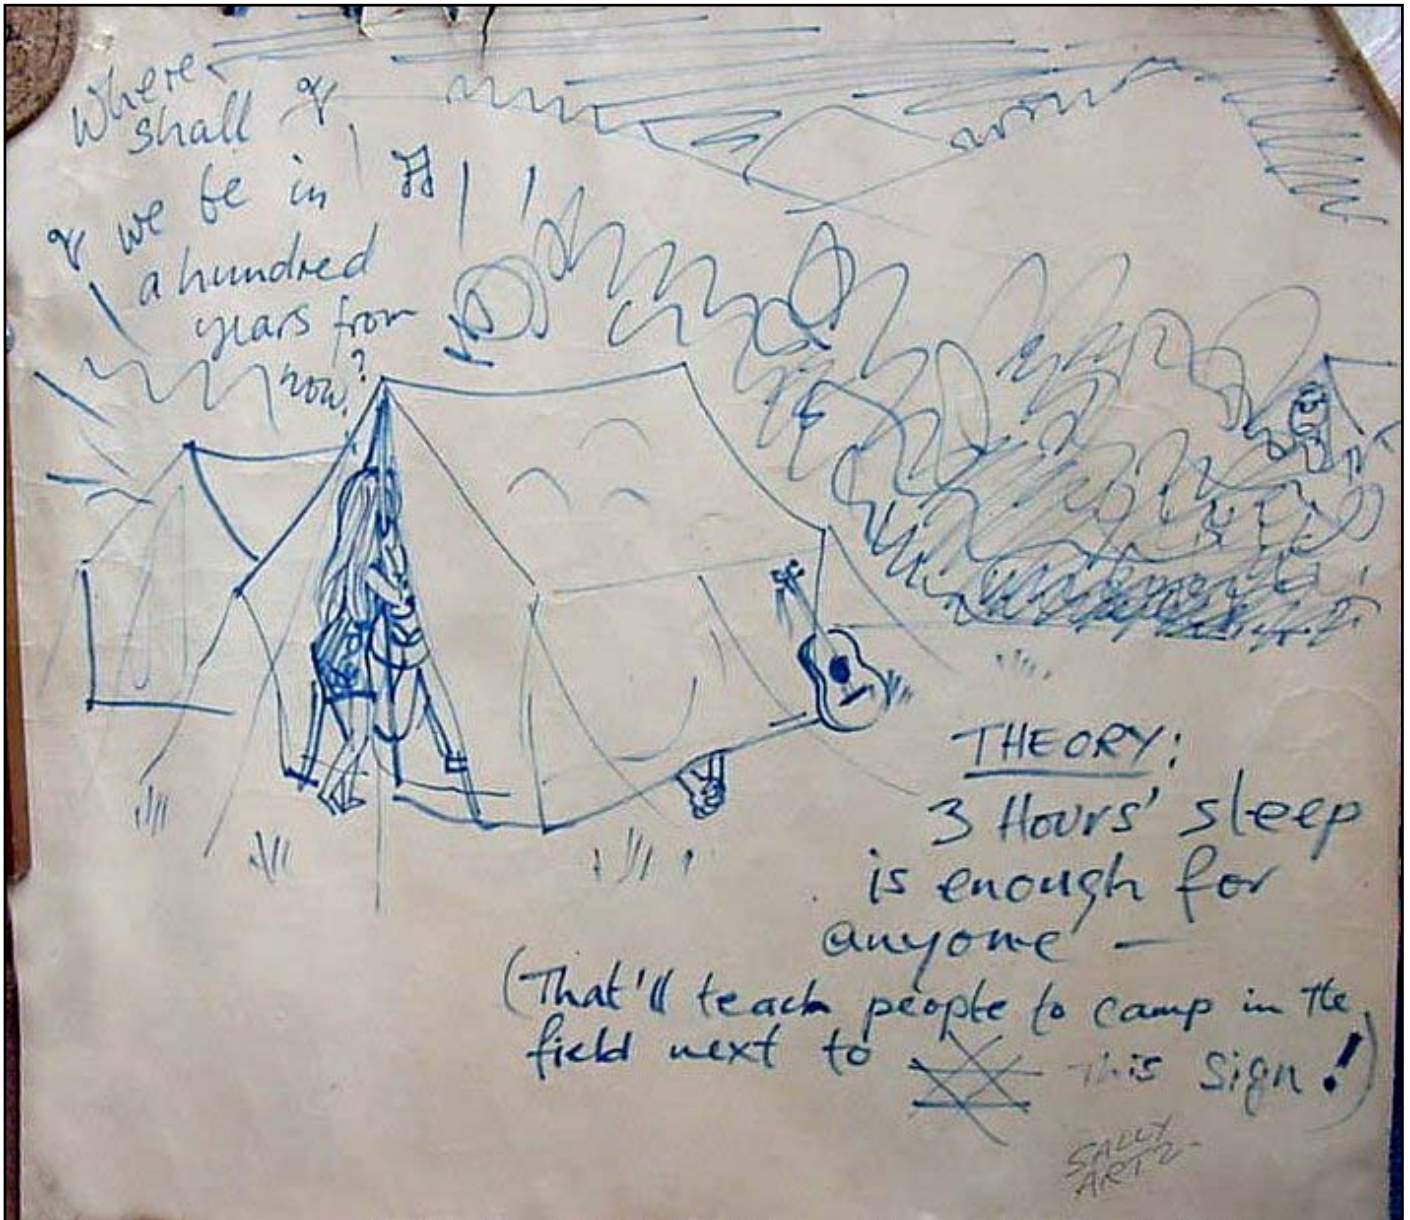 Where
shall
we be in
a hundred
years from
now?
THEORY:
3 Hours' sleep
is enough for
anyone —
(That'll teach people to camp in the
field next to this sign!)
SALLY
ARTZ